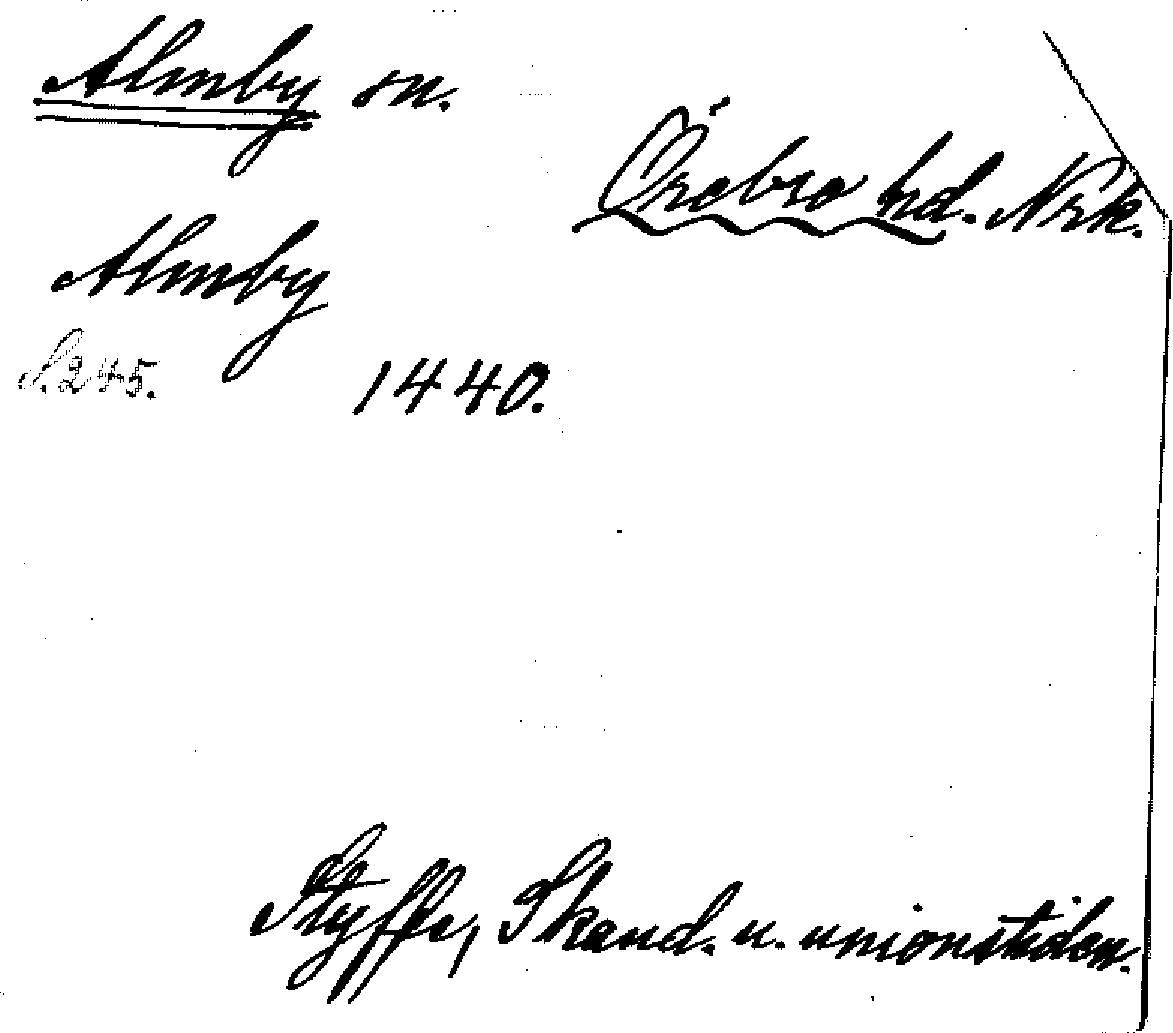 Almby sn.
Örebro hd. Nrk.
Almby
S. 245.
1440.
Styffe, Skand. u. unionstiden.